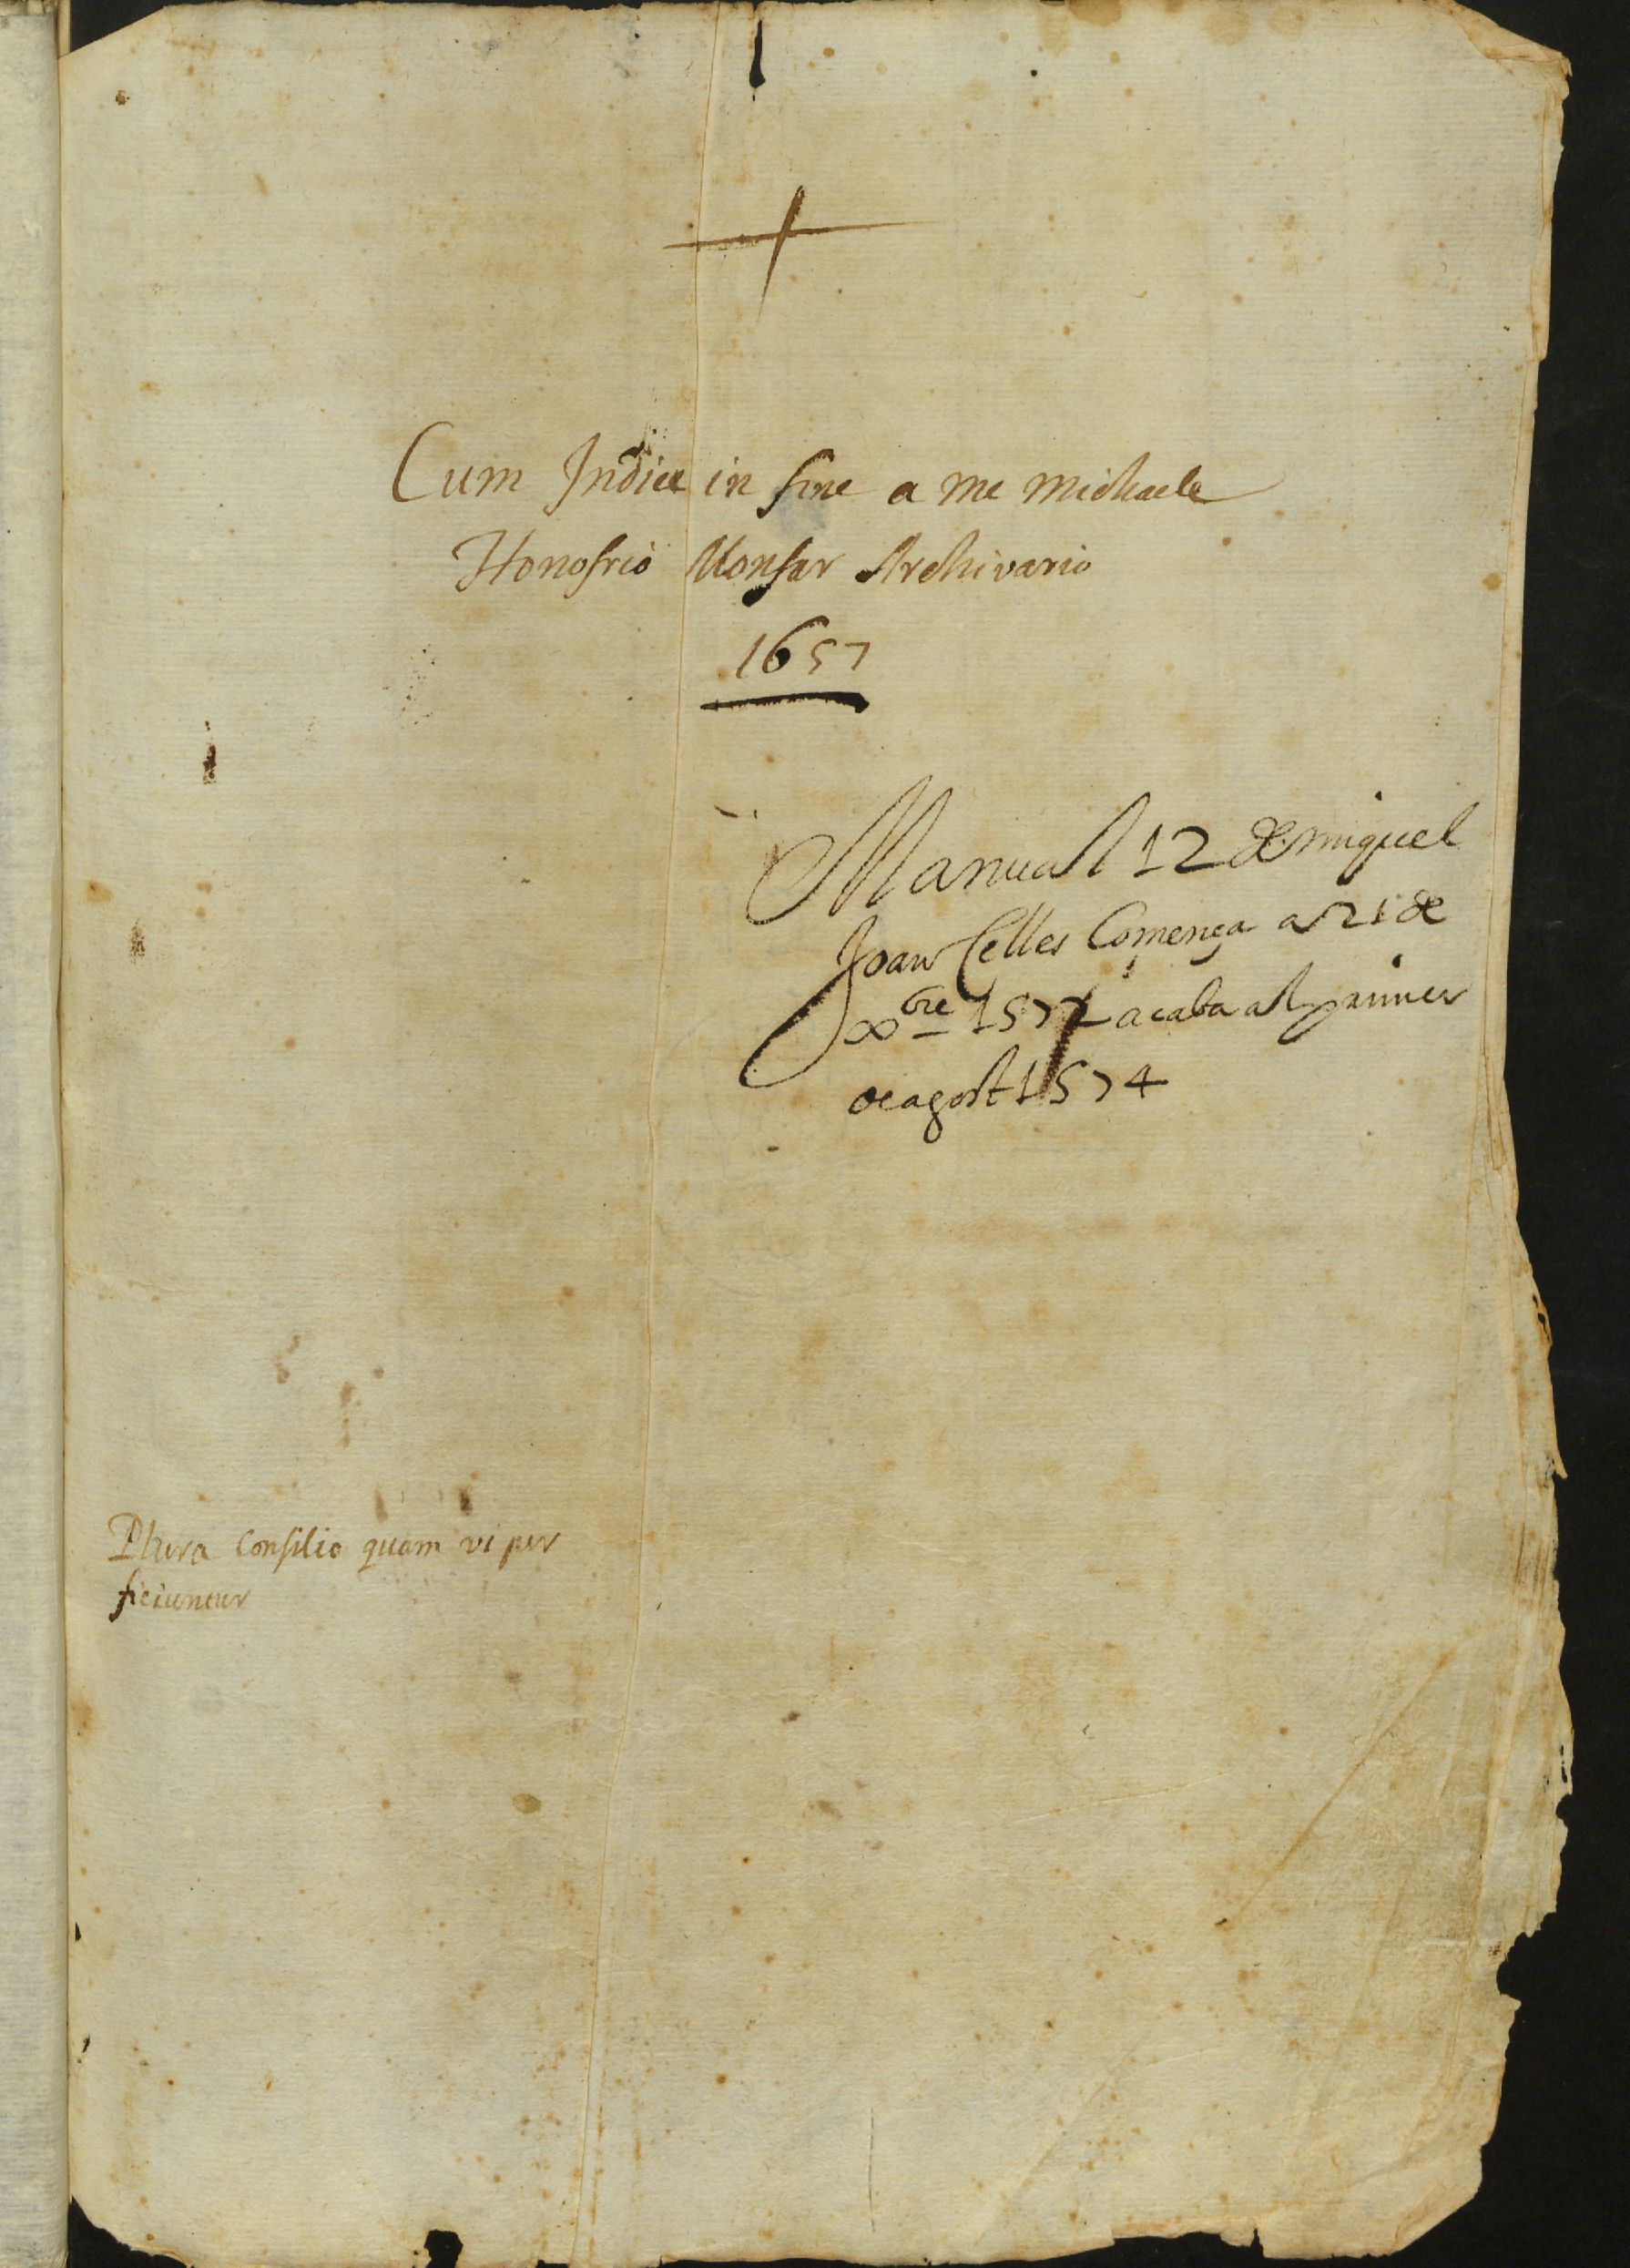 Cum Indice in fine a me Michaele
Honofrio Monfar Archivario
1657
Manual 12 de miquel
Joan Celles Comença a 21 de
xbre 1572 acaba al primer
de agost 1574
Plura Consilio quam vi per
ficiuntur